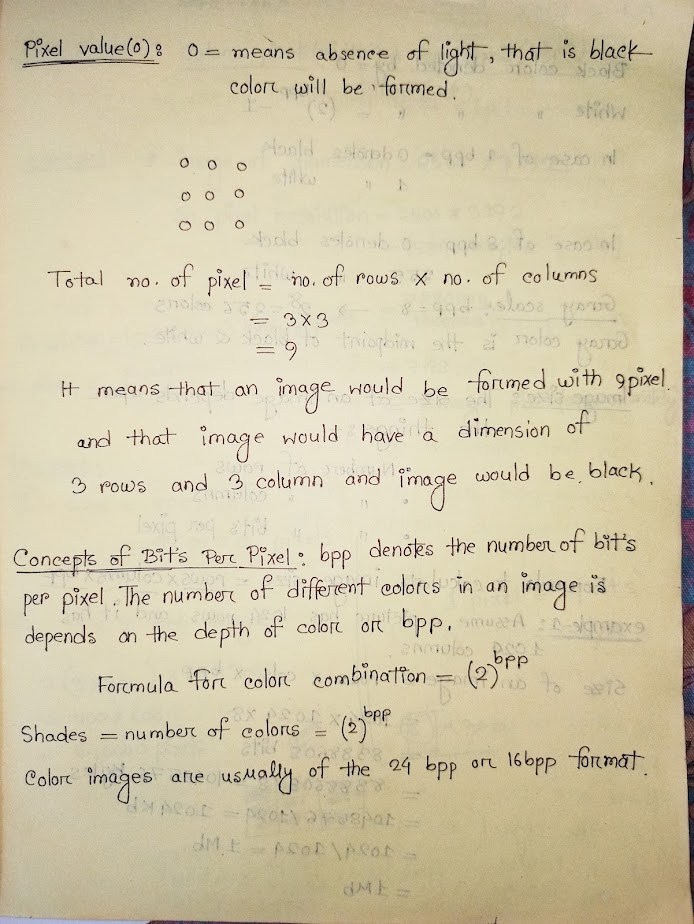 Pixel value(0): 0 = means absence of light, that is black
color will be formed.
0 0 0
0 0 0
0 0 0
Total no. of pixel = no. of rows x no. of columns
= 3x3
= 9
It means that an image would be formed with 9pixel.
and that image would have a dimension of
3 rows and 3 column and image would be black.
Concepts of Bit's Per Pixel: bpp denotes the number of bit's
per pixel. The number of different colors in an image is
depends on the depth of color or bpp.
Formula for color combination = (2)^bpp
Shades = number of colors = (2)^bpp
Color images are usually of the 24 bpp or 16bpp format.